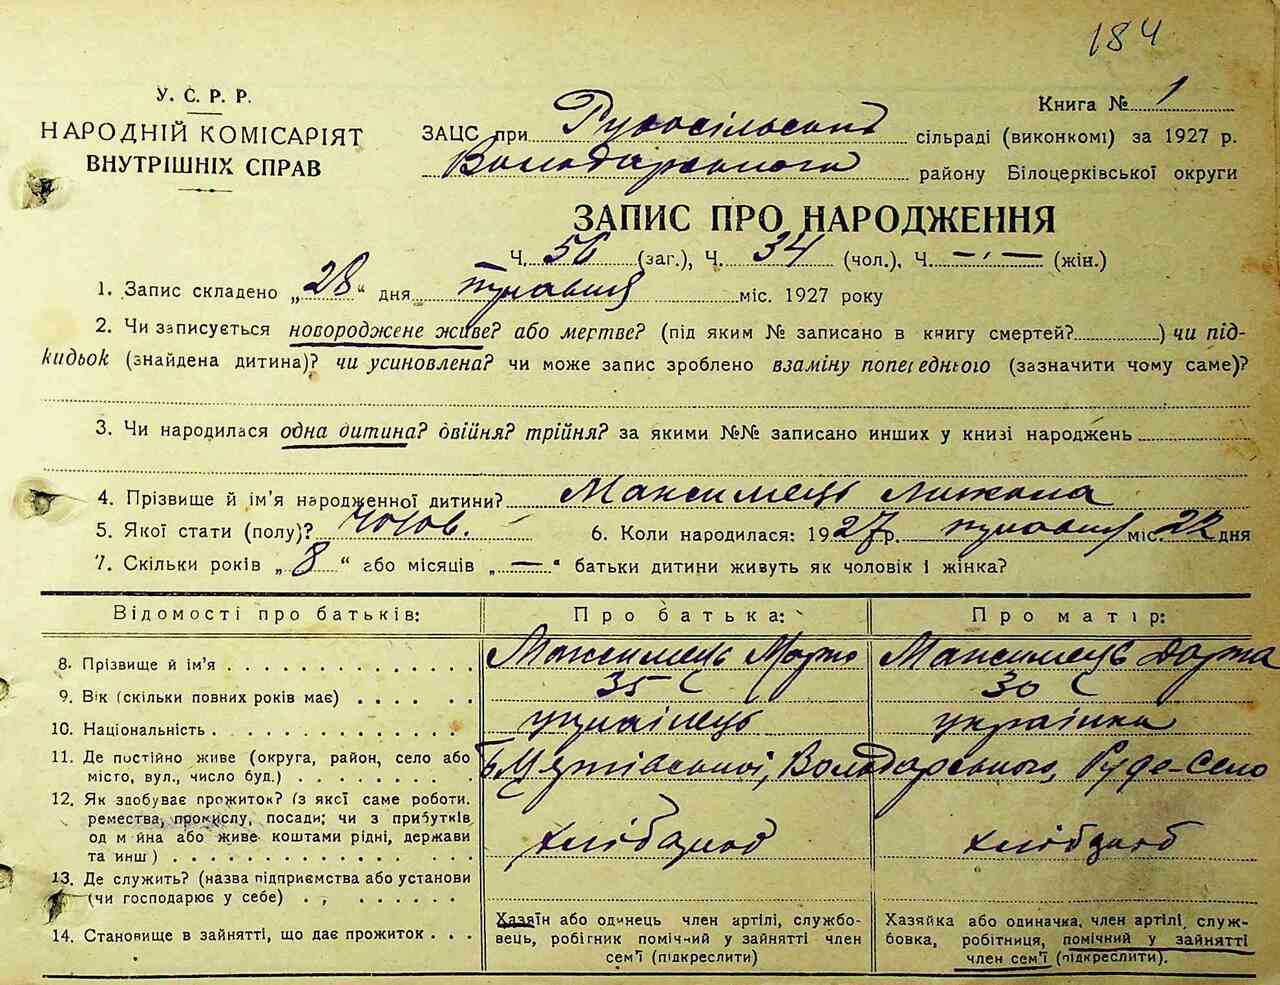 184
У. С. Р. Р.
НАРОДНІЙ КОМІСАРІЯТ
ВНУТРІШНІХ СПРАВ
Книга № 1
ЗАЦС при Рудосільський сільраді (виконкомі) за 1927 р.
Володарського району Білоцерківської округи
ЗАПИС ПРО НАРОДЖЕННЯ
Ч. 56 (заг.), Ч. 34 (чол.), Ч. — . — (жін.)
1. Запис складено „28“ дня травня міс. 1927 року
2. Чи записується новороджене живе? або мертве? (під яким № записано в книгу смертей?) чи під-
кидьок (знайдена дитина)? чи усиновлена? чи може запис зроблено взаміну попереднього (зазначити чому саме)?
3. Чи народилася одна дитина? двійня? трійня? за якими №№ записано инших у книзі народжень
4. Прізвище й ім'я народженної дитини? Максимець
5. Якої стати (полу)? чолов. 6. Коли народилася: 1927 р. травня міс. 22 дня
7. Скільки років „8“ або місяців „—“ батьки дитини живуть як чоловік і жінка?
Відомості про батьків: Про батька: Про матір:
8. Прізвище й ім'я Максимець Марко Максимець Дарка
9. Вік (скільки повних років має) 35 30
10. Національність українець українка
11. Де постійно живе (округа, район, село або
місто, вул., число буд.) Володарського, Руде-Село
12. Як здобуває прожиток? (з якої саме роботи.
ремества, промислу, посади; чи з прибутків
од майна або живе коштами рідні, держави
та инш) хлібороб хлібороб
13. Де служить? (назва підприємства або установи
(чи господарює у себе)
14. Становище в зайнятті, що дає прожиток
Хазяїн або одинець член артілі, службо-
вець, робітник помічний у зайнятті член
сем'ї (підкреслити)
Хазяйка або одиначка, член артілі, служ-
бовка, робітниця, помічний у зайнятті
член сем'ї (підкреслити).